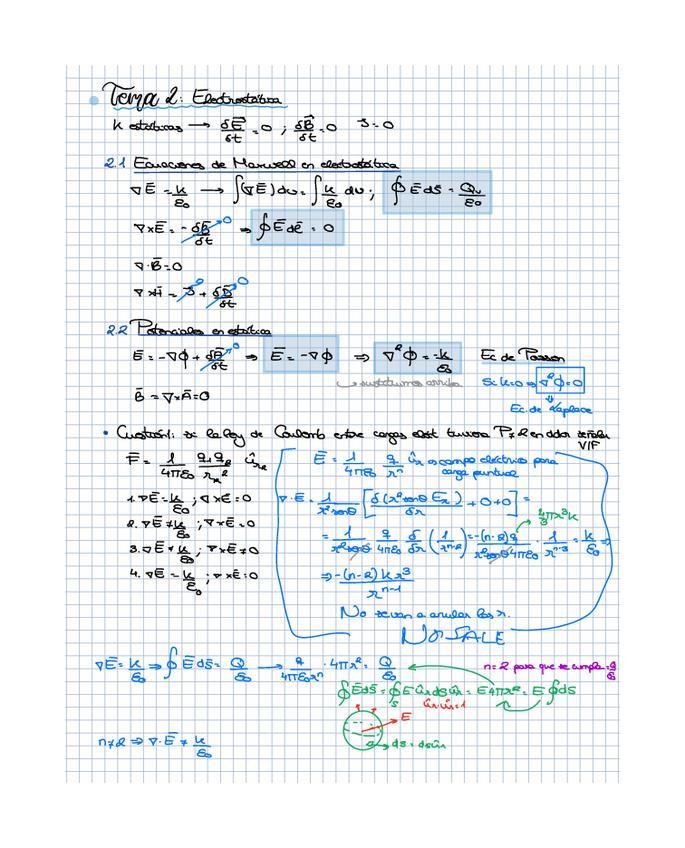 Tema 2: Electrostática
k estáticas → δĒ/δt = 0 ; δB̄/δt = 0 J = 0
2.1 Ecuaciones de Maxwell en electrostática
∇Ē = k/ε₀ → ∫(∇Ē)dv = ∫ k/ε₀ dv ; ∮ Ē ds̄ = Qv/ε₀
∇×Ē = -δB̄/δt 0 ⇒ ∮ Ē dē = 0
∇·B̄ = 0
∇×H̄ = J 0 + δD̄/δt 0
2.2 Potenciales en estática
Ē = -∇ϕ + δĀ/δt 0 ⇒ Ē = -∇ϕ ⇒ ∇²ϕ = -k/ε₀ Ec de Poisson
sustituimos arriba Si k=0 ⇒ ∇²ϕ=0
B̄ = ∇×Ā = 0
Ec. de Laplace
• Cuestión: si la ley de Coulomb entre cargas elect tuviera n≠2 en señalar V/F
F̄ = 1/4πε₀ q₁q₂/rⁿ
1. ∇Ē = k/ε₀ ; ∇×Ē = 0
2. ∇Ē ≠ k/ε₀ ; ∇×Ē = 0
3. ∇Ē ≠ k/ε₀ ; ∇×Ē ≠ 0
4. ∇Ē = k/ε₀ ; ∇×Ē = 0
Ē = 1/4πε₀ q/rⁿ ûr ⇒ campo eléctrico para
carga puntual
∇·Ē = 1/r²senθ [δ(r²senθ Er)/δr + 0 + 0] =
4/3πr³k
= 1/r²senθ q/4πε₀ δ/δr (1/rⁿ⁻²) = -(n-2)q/r²senθ4πε₀ · 1/rⁿ⁻³ = k/ε₀ ⇒
⇒ -(n-2)kr³/rⁿ⁻¹
No se van a anular las r.
NO SALE
∇Ē = k/ε₀ ⇒ ∮ Ē ds̄ = Q/ε₀ → q/4πε₀rⁿ · 4πr² = Q/ε₀ n=2 para que se cumpla q/ε₀
∮Ēds̄ = ∮Ē ûr ds ûr = E4πr² = E∮ds
ûr·ûr=1
E
ds̄ = dsûr
n≠2 ⇒ ∇·Ē ≠ k/ε₀